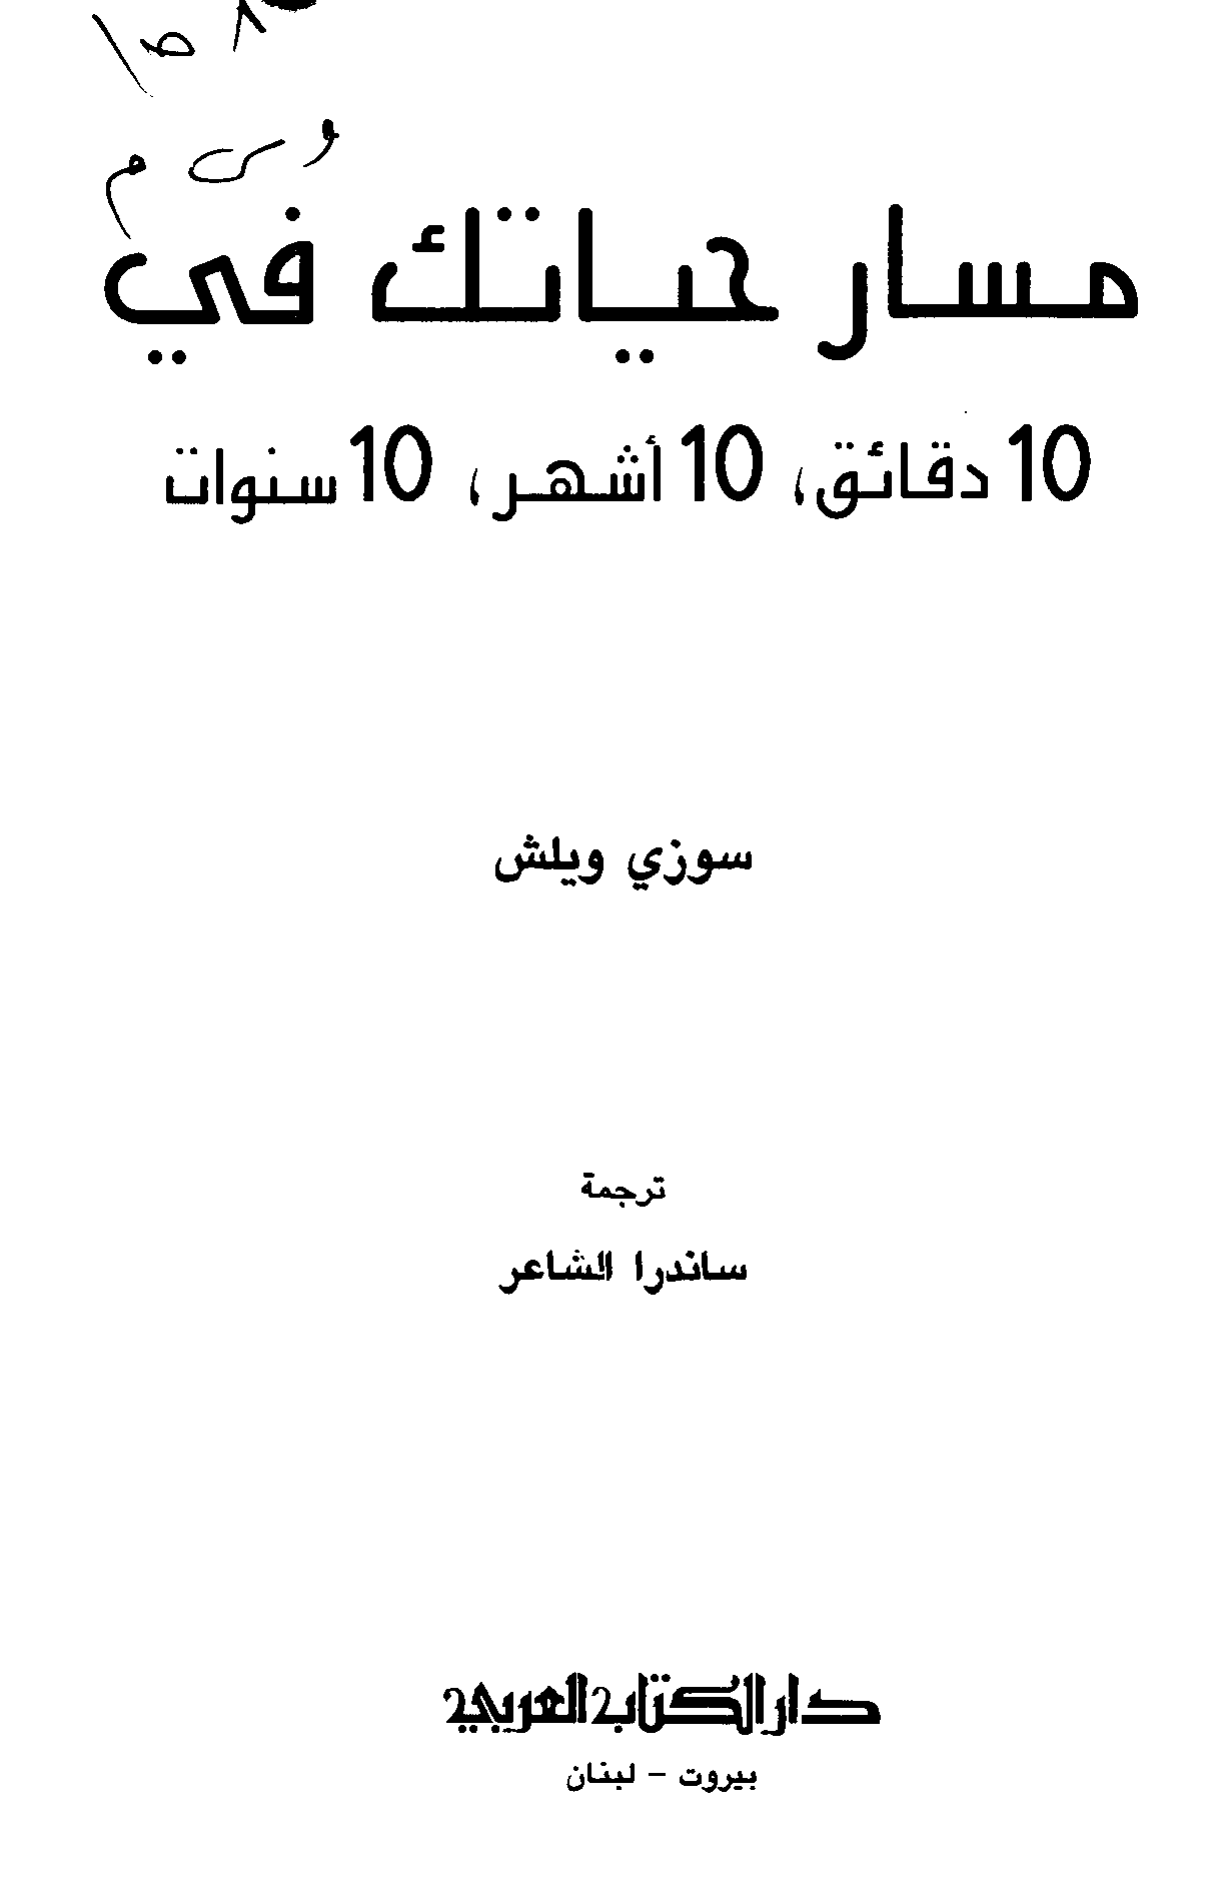 مسار حياتك في
10 دقائق، 10 أشهر، 10 سنوات
سوزي ويلش
ترجمة
ساندرا الشاعر
دار الكتاب العربي
بيروت - لبنان